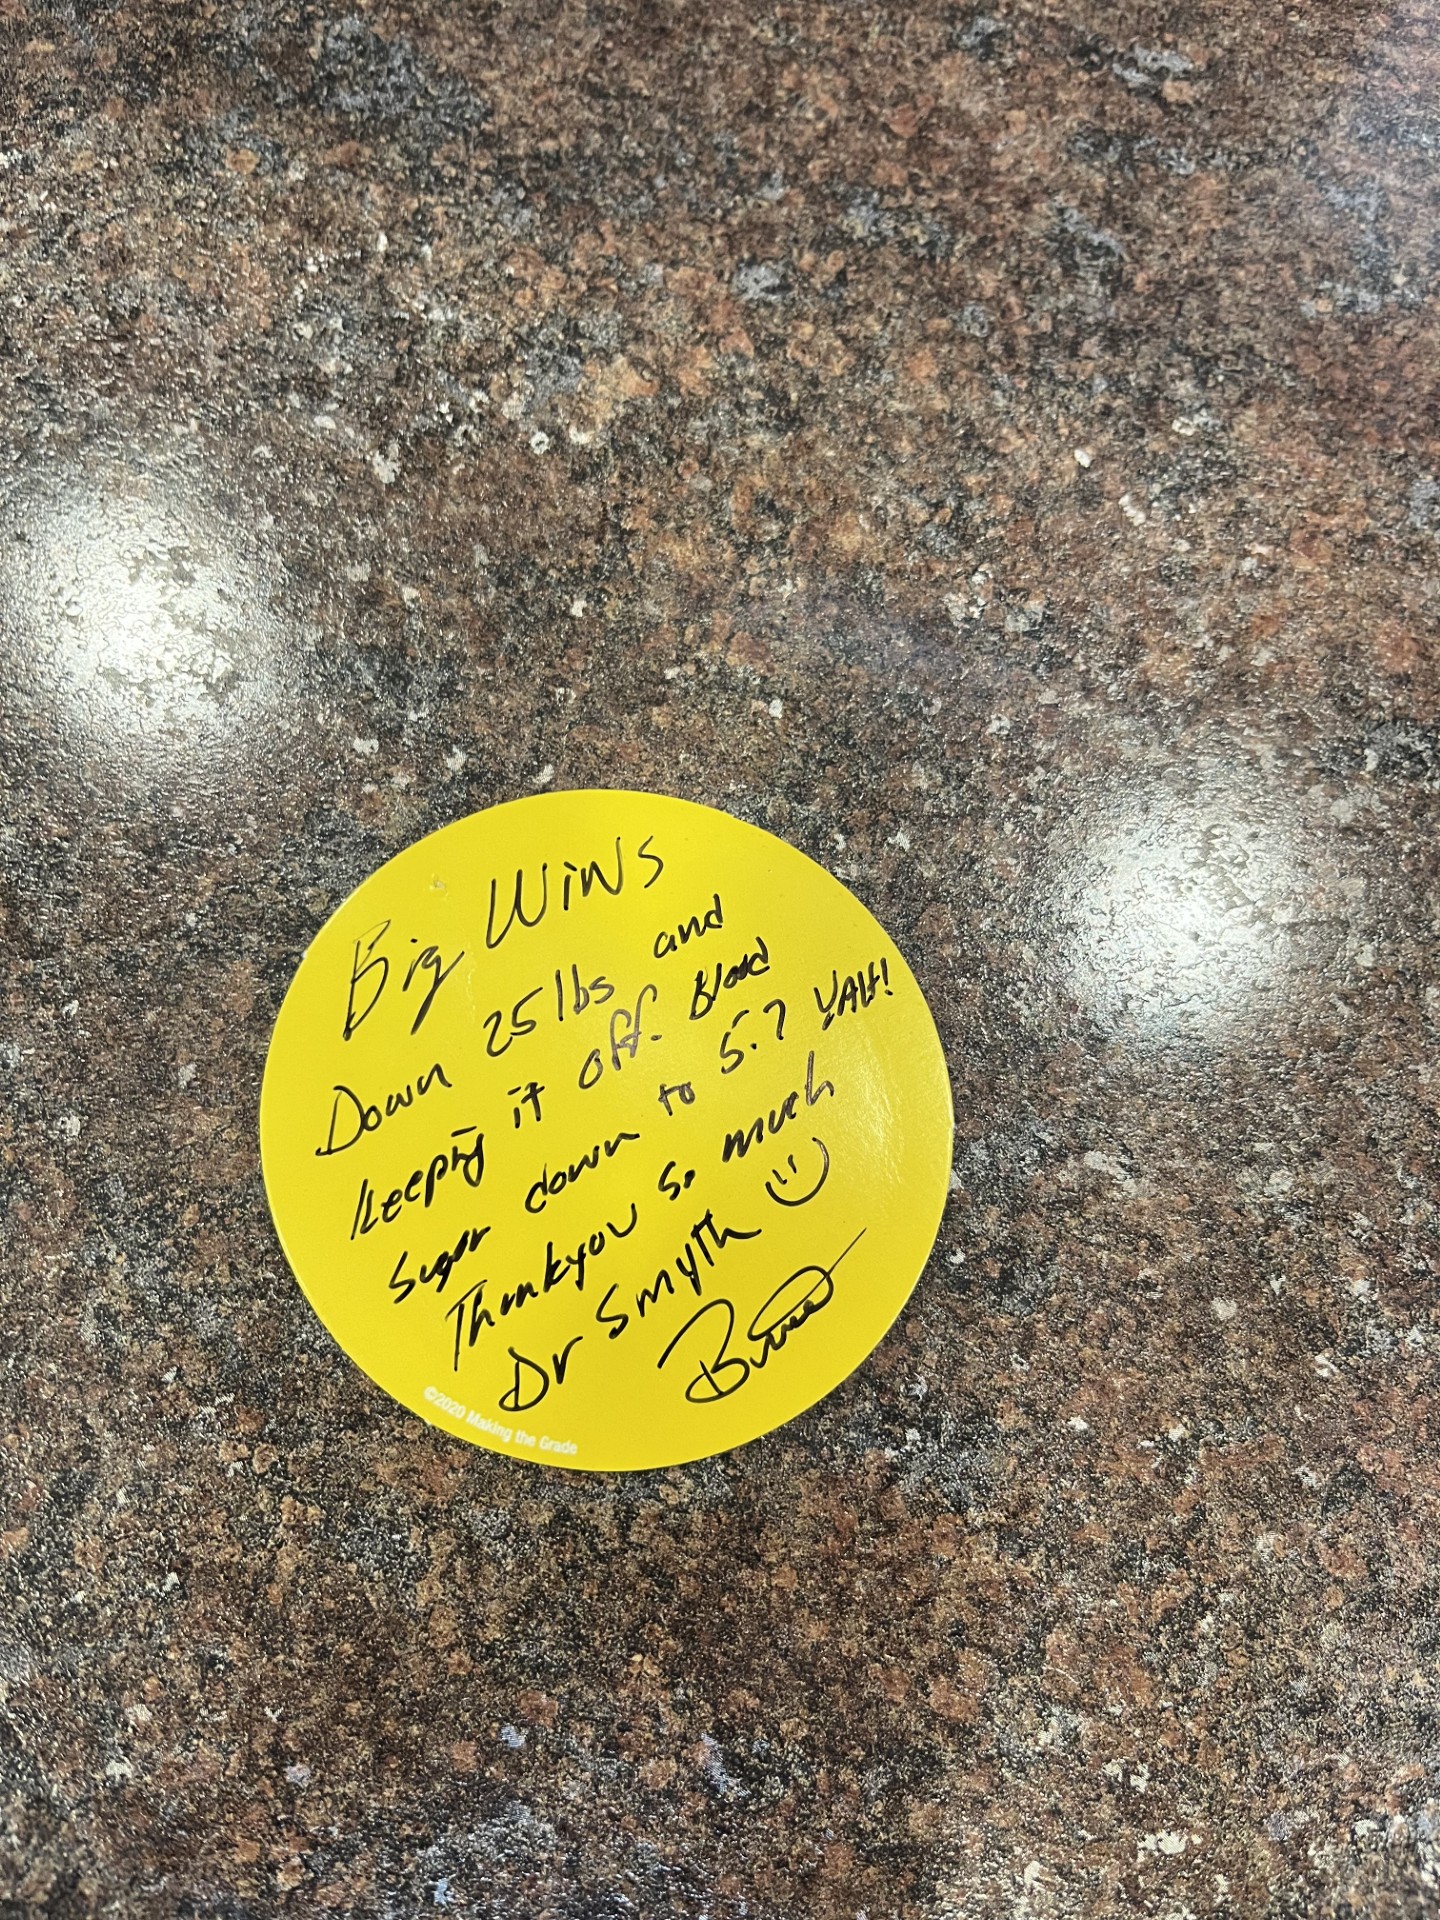 Big Wins
Down 25 lbs and
Keeping it off. Blood
Sugar down to 5.7 YAH!
Thankyou So much
Dr Smyth
©2020 Making the Grade